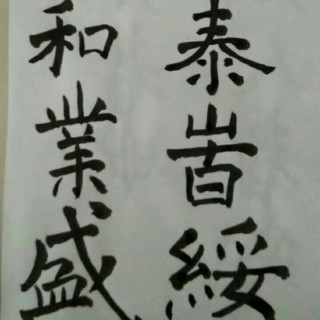 泰旹綏
和業盛